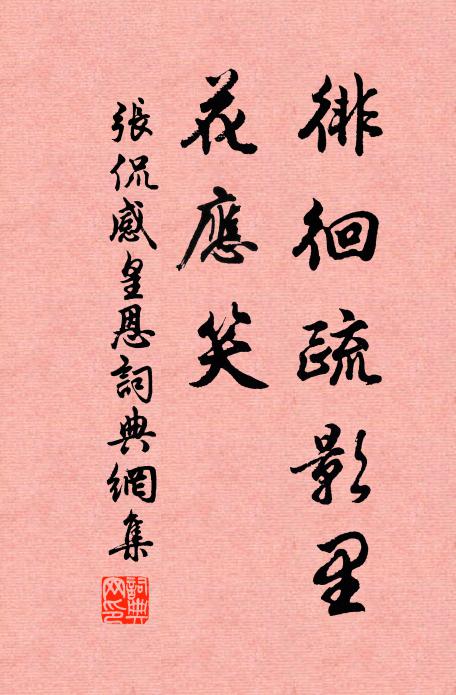 徘徊疏影里
花應笑
張侃感皇恩詞典網集
詞典網印